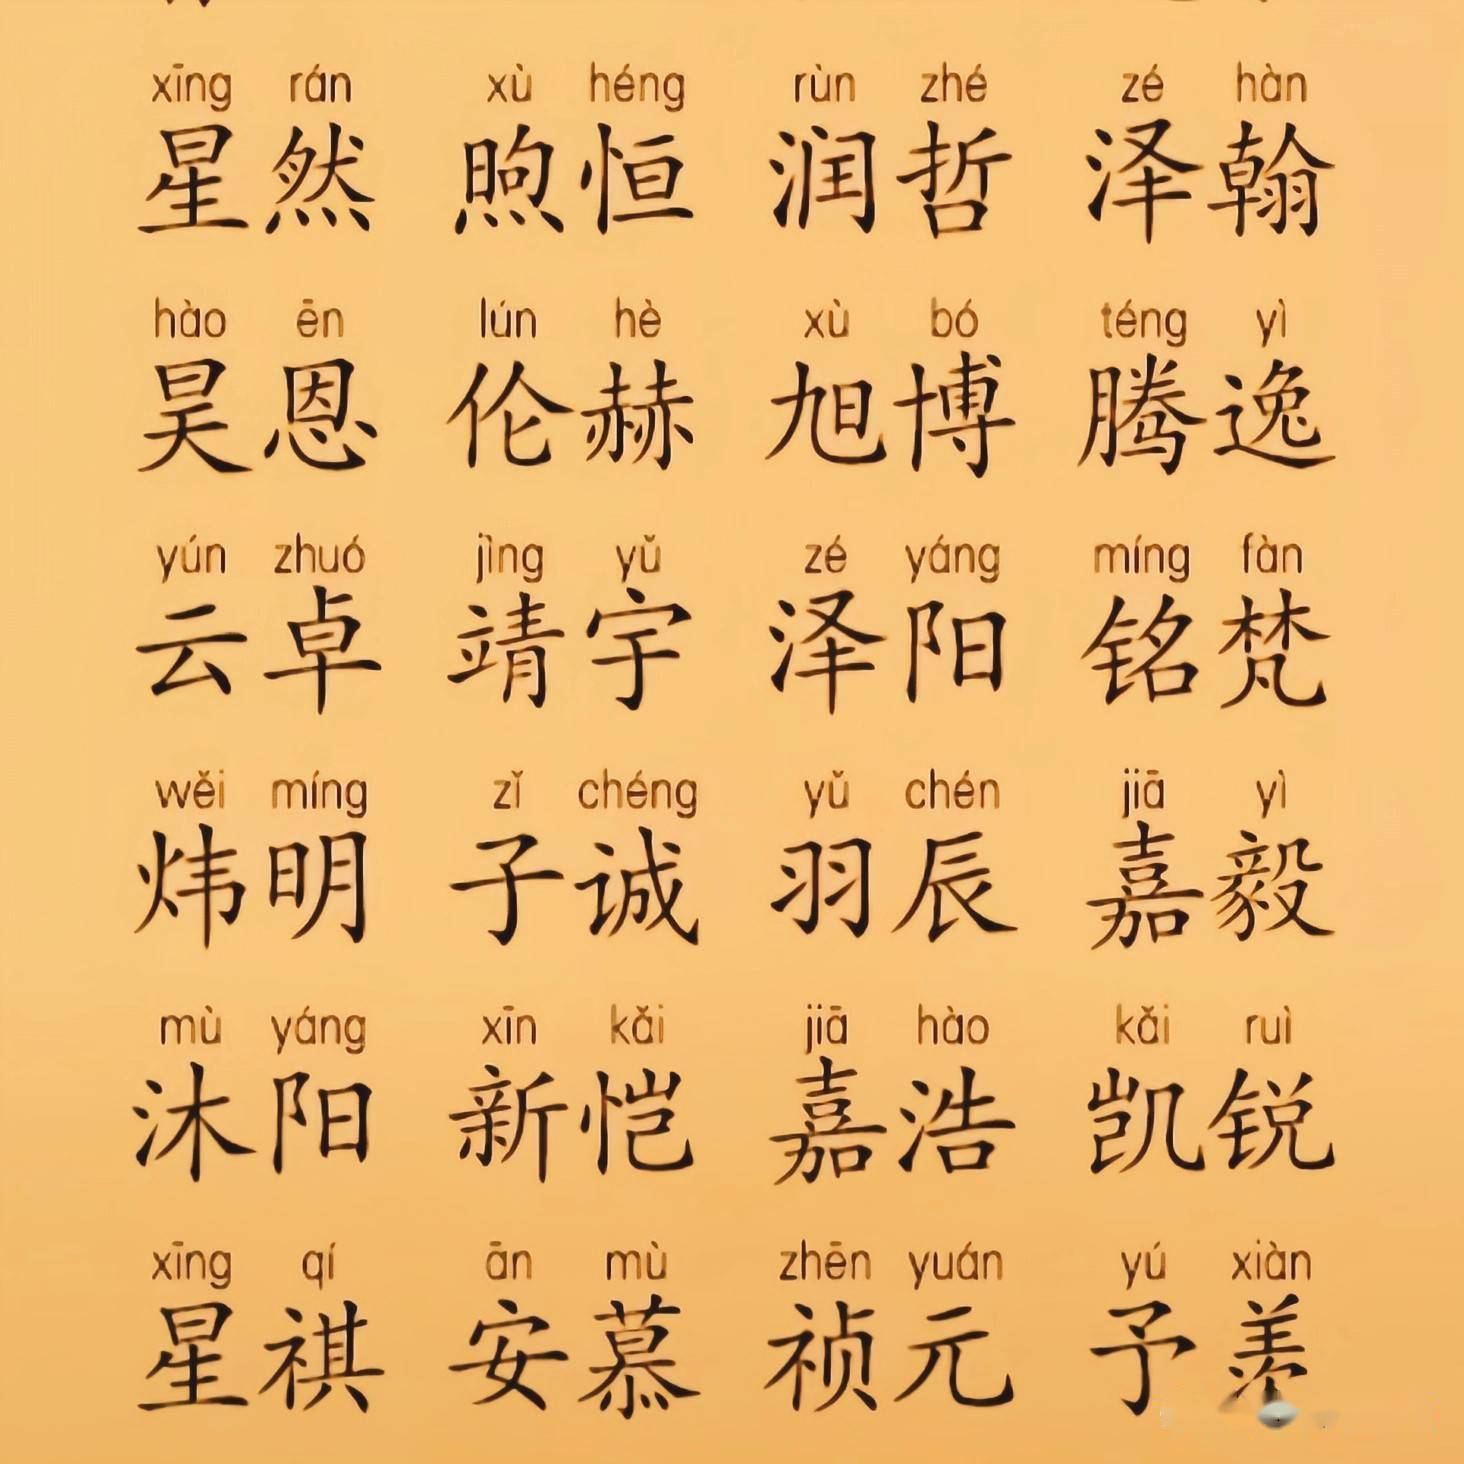 xīng rán xù héng rùn zhé zé hàn
星然 煦恒 润哲 泽翰
hào ēn lún hè xù bó téng yì
昊恩 伦赫 旭博 腾逸
yún zhuó jìng yǔ zé yáng míng fàn
云卓 靖宇 泽阳 铭梵
wěi míng zǐ chéng yǔ chén jiā yì
炜明 子诚 羽辰 嘉毅
mù yáng xīn kǎi jiā hào kǎi ruì
沐阳 新恺 嘉浩 凯锐
xīng qí ān mù zhēn yuán yú xiàn
星祺 安慕 祯元 予羡